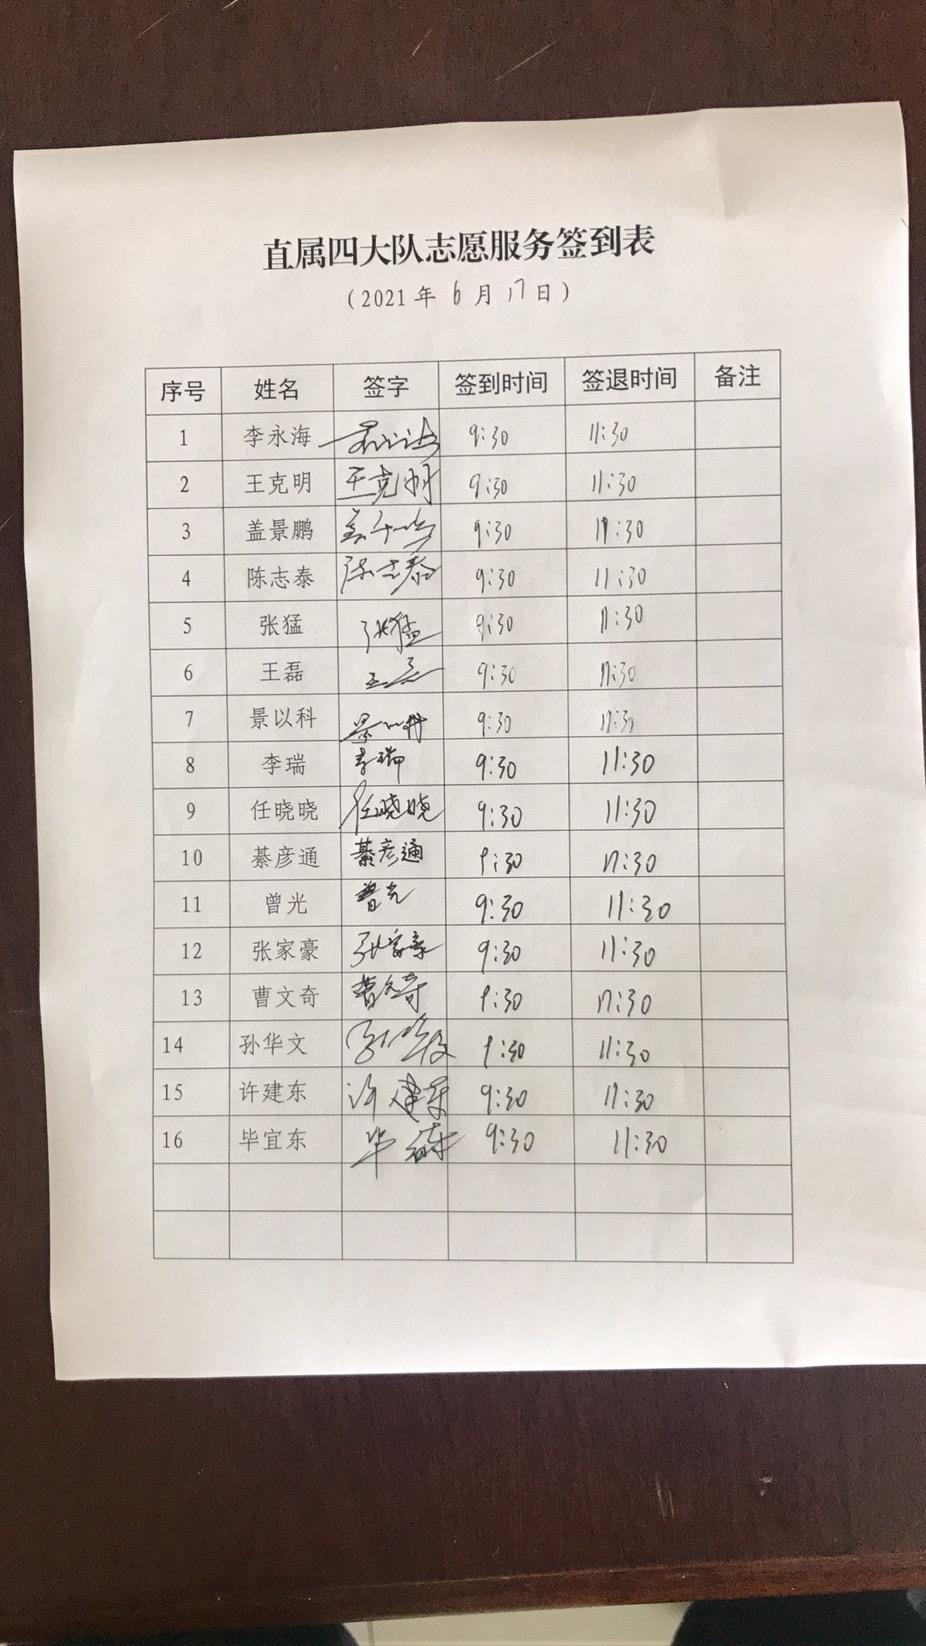 直属四大队志愿服务签到表
（2021 年 6 月 17 日）
序号 姓名 签字 签到时间 签退时间 备注
1 李永海 9:30 11:30
2 王克明 王克明 9:30 11:30
3 盖景鹏 9:30 11:30
4 陈志泰 陈志泰 9:30 11:30
5 张猛 张猛 9:30 11:30
6 王磊 王磊 9:30 11:30
7 景以科 景以科 9:30 11:30
8 李瑞 李瑞 9:30 11:30
9 任晓晓 任晓晓 9:30 11:30
10 綦彦通 綦彦通 9:30 11:30
11 曾光 曾光 9:30 11:30
12 张家豪 张家豪 9:30 11:30
13 曹文奇 曹文奇 9:30 11:30
14 孙华文 9:30 11:30
15 许建东 许建东 9:30 11:30
16 毕宜东 9:30 11:30